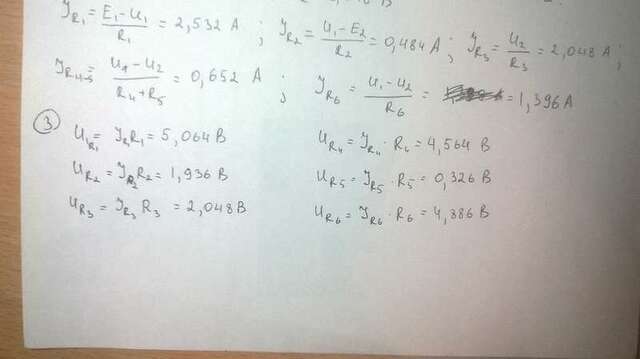 I_R1 = (E1-U1)/R1 = 2,532 A ; I_R2 = (U1-E2)/R2 = 0,484 A ; I_R3 = U2/R3 = 2,048 A ;
I_R4-5 = (U1-U2)/(R4+R5) = 0,652 A ; I_R6 = (U1-U2)/R6 = = 1,396 A
3
U_R1 = I_R1 R1 = 5,064 В U_R4 = I_R4 · R4 = 4,564 В
U_R2 = I_R2 R2 = 1,936 В U_R5 = I_R5 · R5 = 0,326 В
U_R3 = I_R3 R3 = 2,048 В U_R6 = I_R6 · R6 = 4,886 В